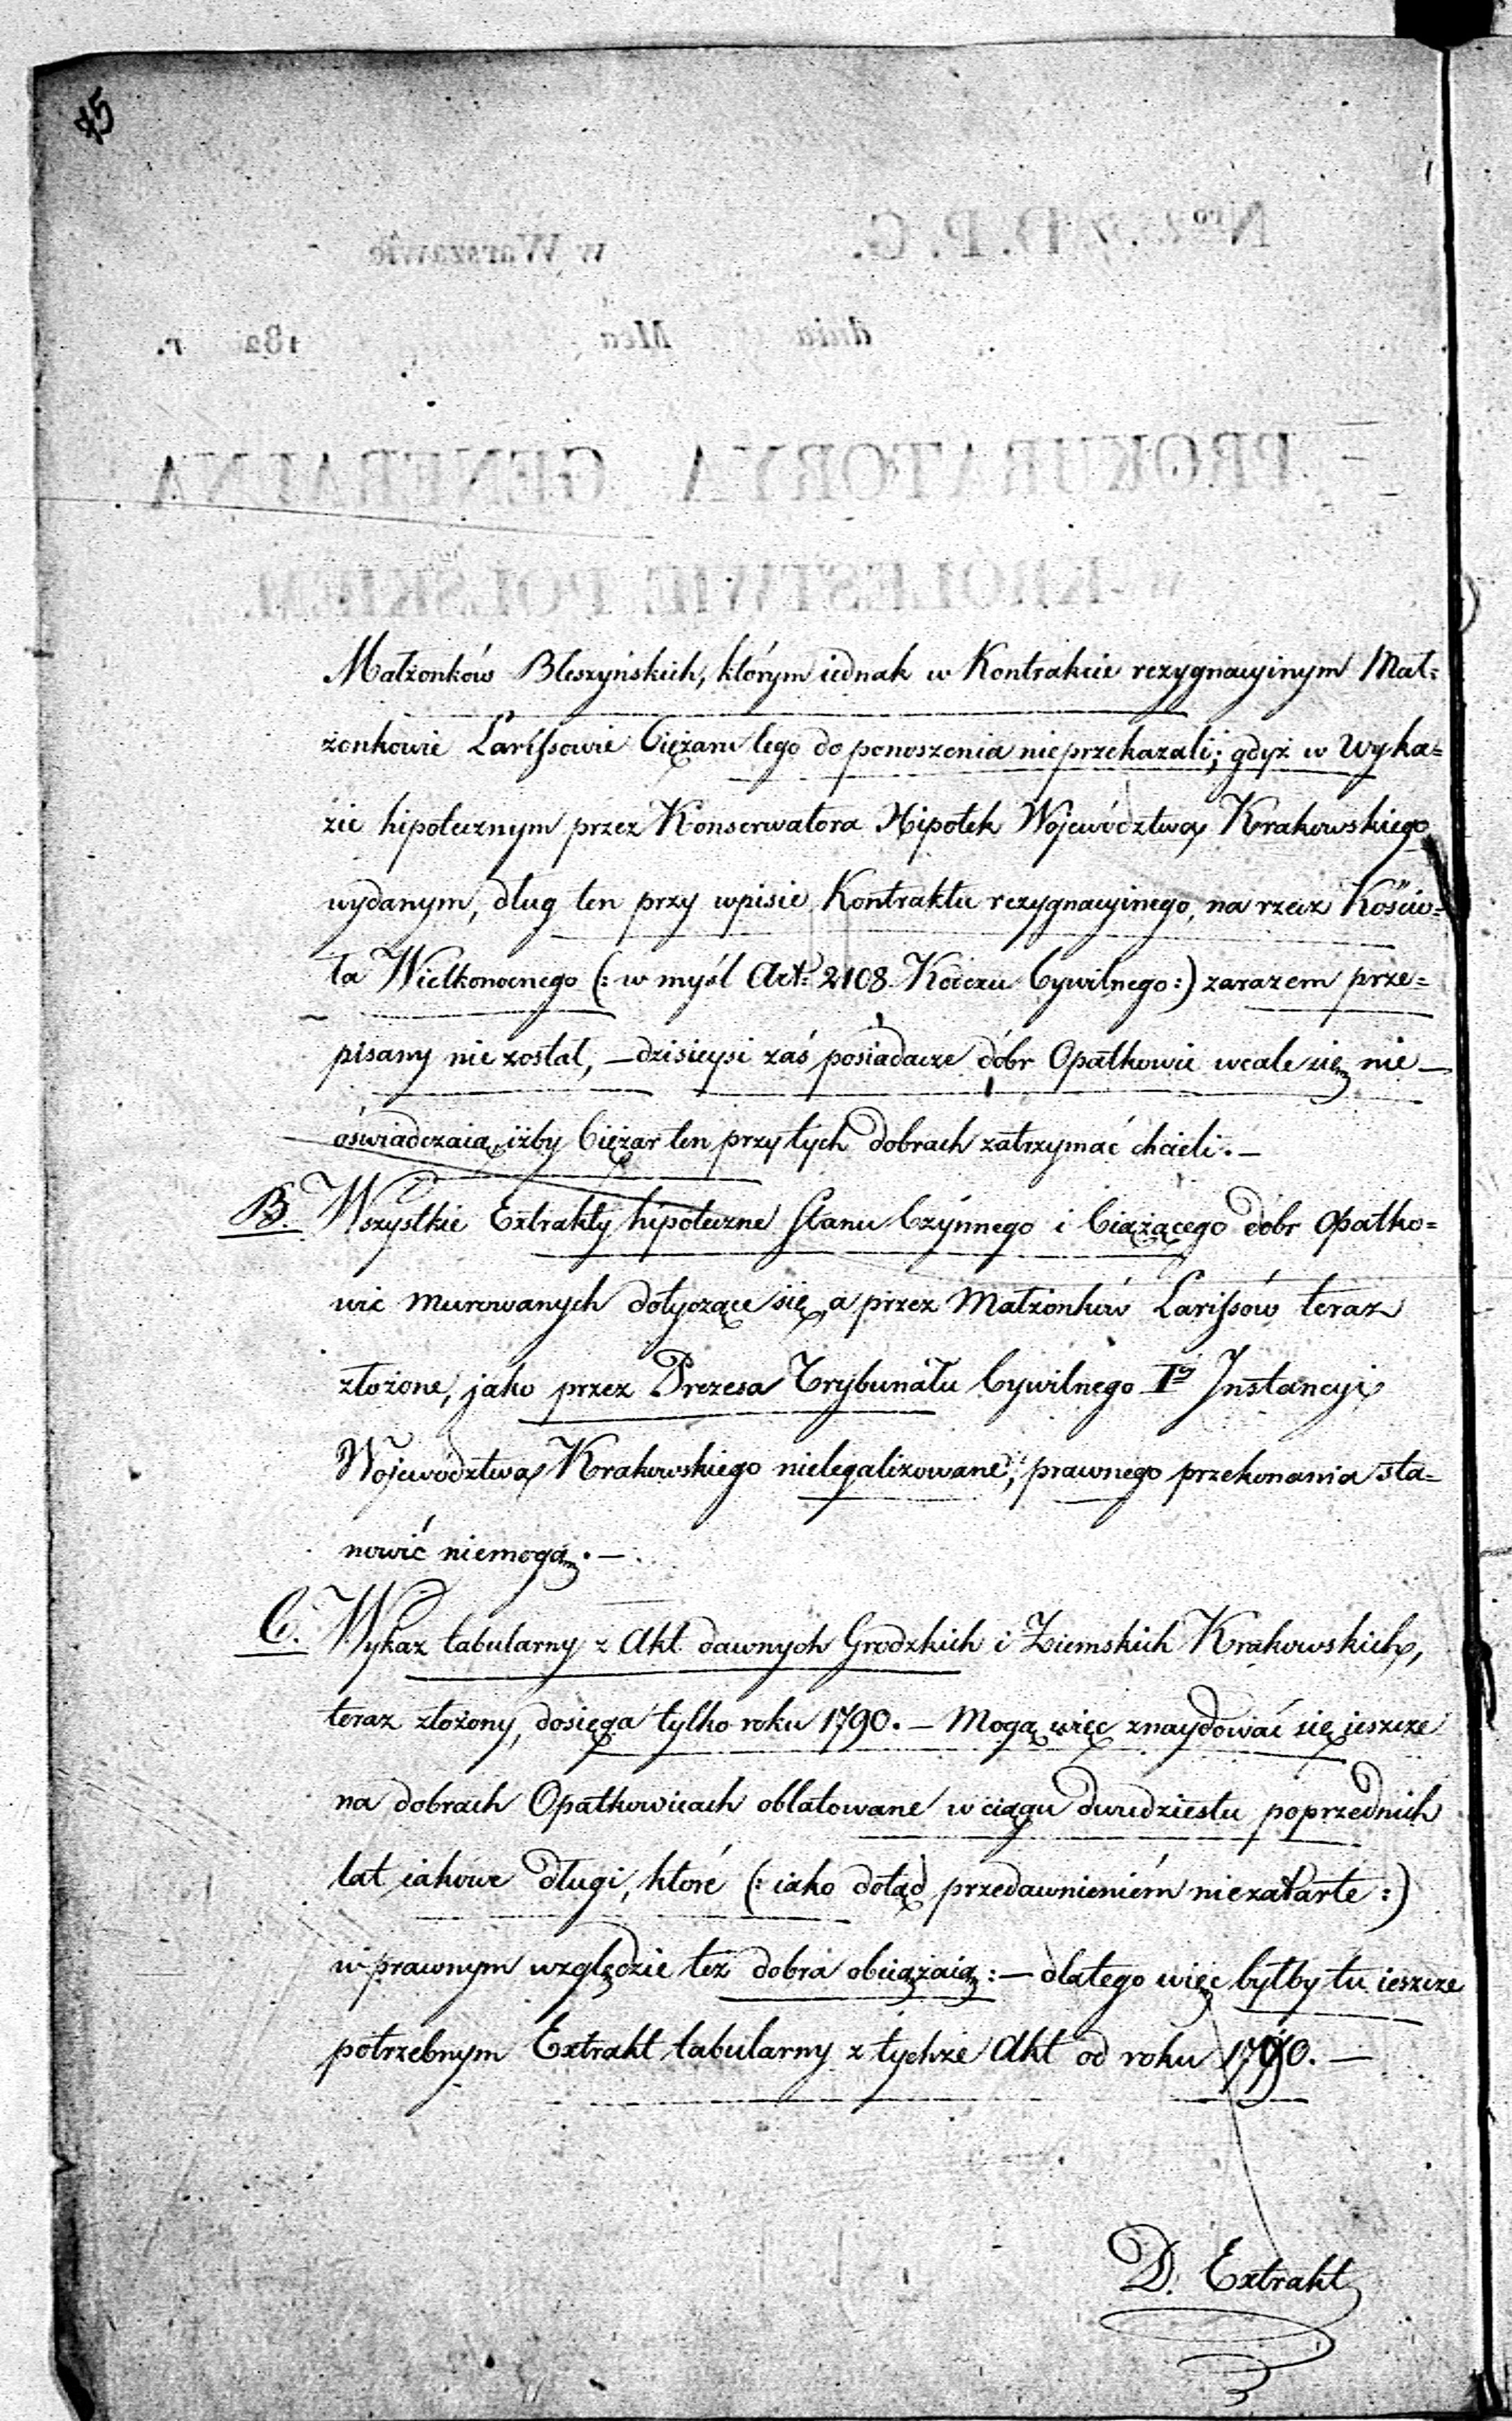 75
Nro 257 D. P. G. w Warszawie
dnia Mca 182 r.
PROKURATORYA GENERALNA
w KROLESTWIE POLSKIEM.
Małżonków Bleszyńskich, którym iednak w Kontrakcie rezygnacyinym Mał=
żonkowie Larissowie Ciężaru tego do ponoszenia nieprzekazali; gdyż w Wyka=
zie hipotecznym przez Konserwatora Hipotek Województwa Krakowskiego
wydanym, dług ten przy wpisie Kontraktu rezygnacyinego, na rzecz Kościo=
ła Wielkonocnego (: w myśl Art: 2108 Kodexu Cywilnego :) zarazem prze=
pisany nie został, — dzisieysi zaś posiadacze dóbr Opatkowic wcale się nie —
oświadczaią, iżby Ciężar ten przy tych dobrach zatrzymać chcieli. —
B. Wszystkie Extrakty hipoteczne Stanu Czynnego i Ciążącego dóbr Opatko=
wic murowanych dotyczące się, a przez Małżonków Larissów teraz
złożone, jako przez Prezesa Trybunału Cywilnego Iy Instancyi
Województwa Krakowskiego nielegalizowane, prawnego przekonania sta=
nowić niemogą. —
C. Wykaz tabularny z Akt dawnych Grodzkich i Ziemskich Krakowskich,
teraz złożony, dosięga tylko roku 1790. — Mogą więc znaydować się ieszcze
na dobrach Opatkowicach oblatowane w ciągu dwudziestu poprzednich
lat iakowe długi, które (: iako dotąd przedawnieniém niezatarte :)
w prawnym względzie też dobra obciążaią: — dlatego więc byłby tu ieszcze
potrzebnym Extrakt tabularny z tychże Akt od roku
D. Extrakt